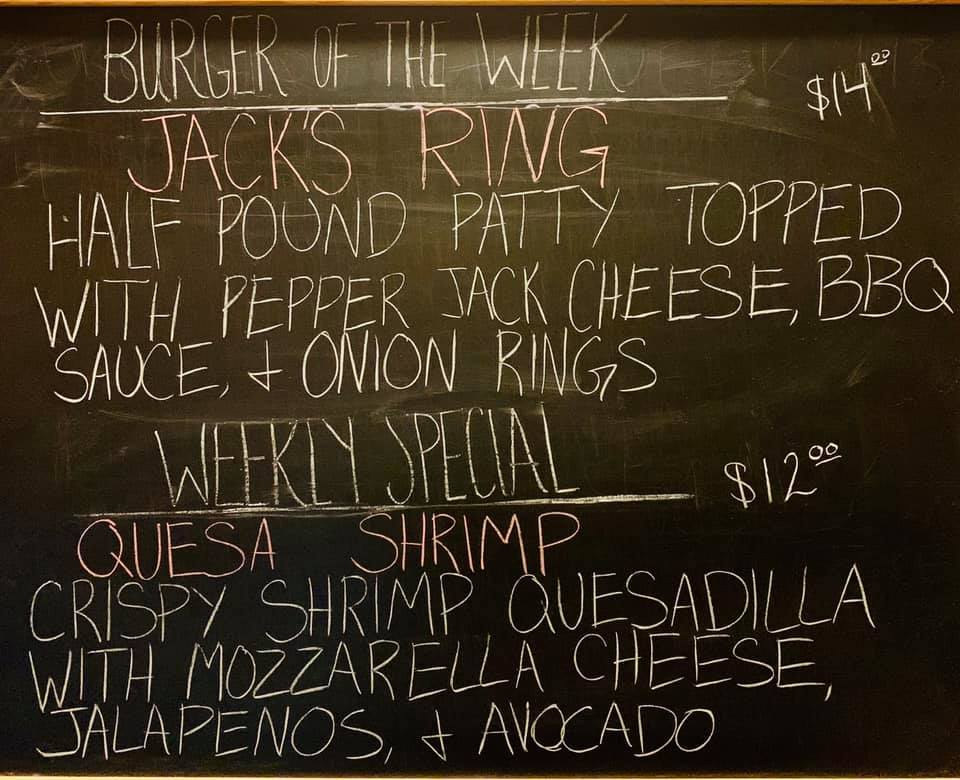 BURGER OF THE WEEK
$14.00
JACK'S RING
HALF POUND PATTY TOPPED
WITH PEPPER JACK CHEESE, BBQ
SAUCE, + ONION RINGS
WEEKLY SPECIAL
$12.00
QUESA SHRIMP
CRISPY SHRIMP QUESADILLA
WITH MOZZARELLA CHEESE,
JALAPENOS, + AVOCADO